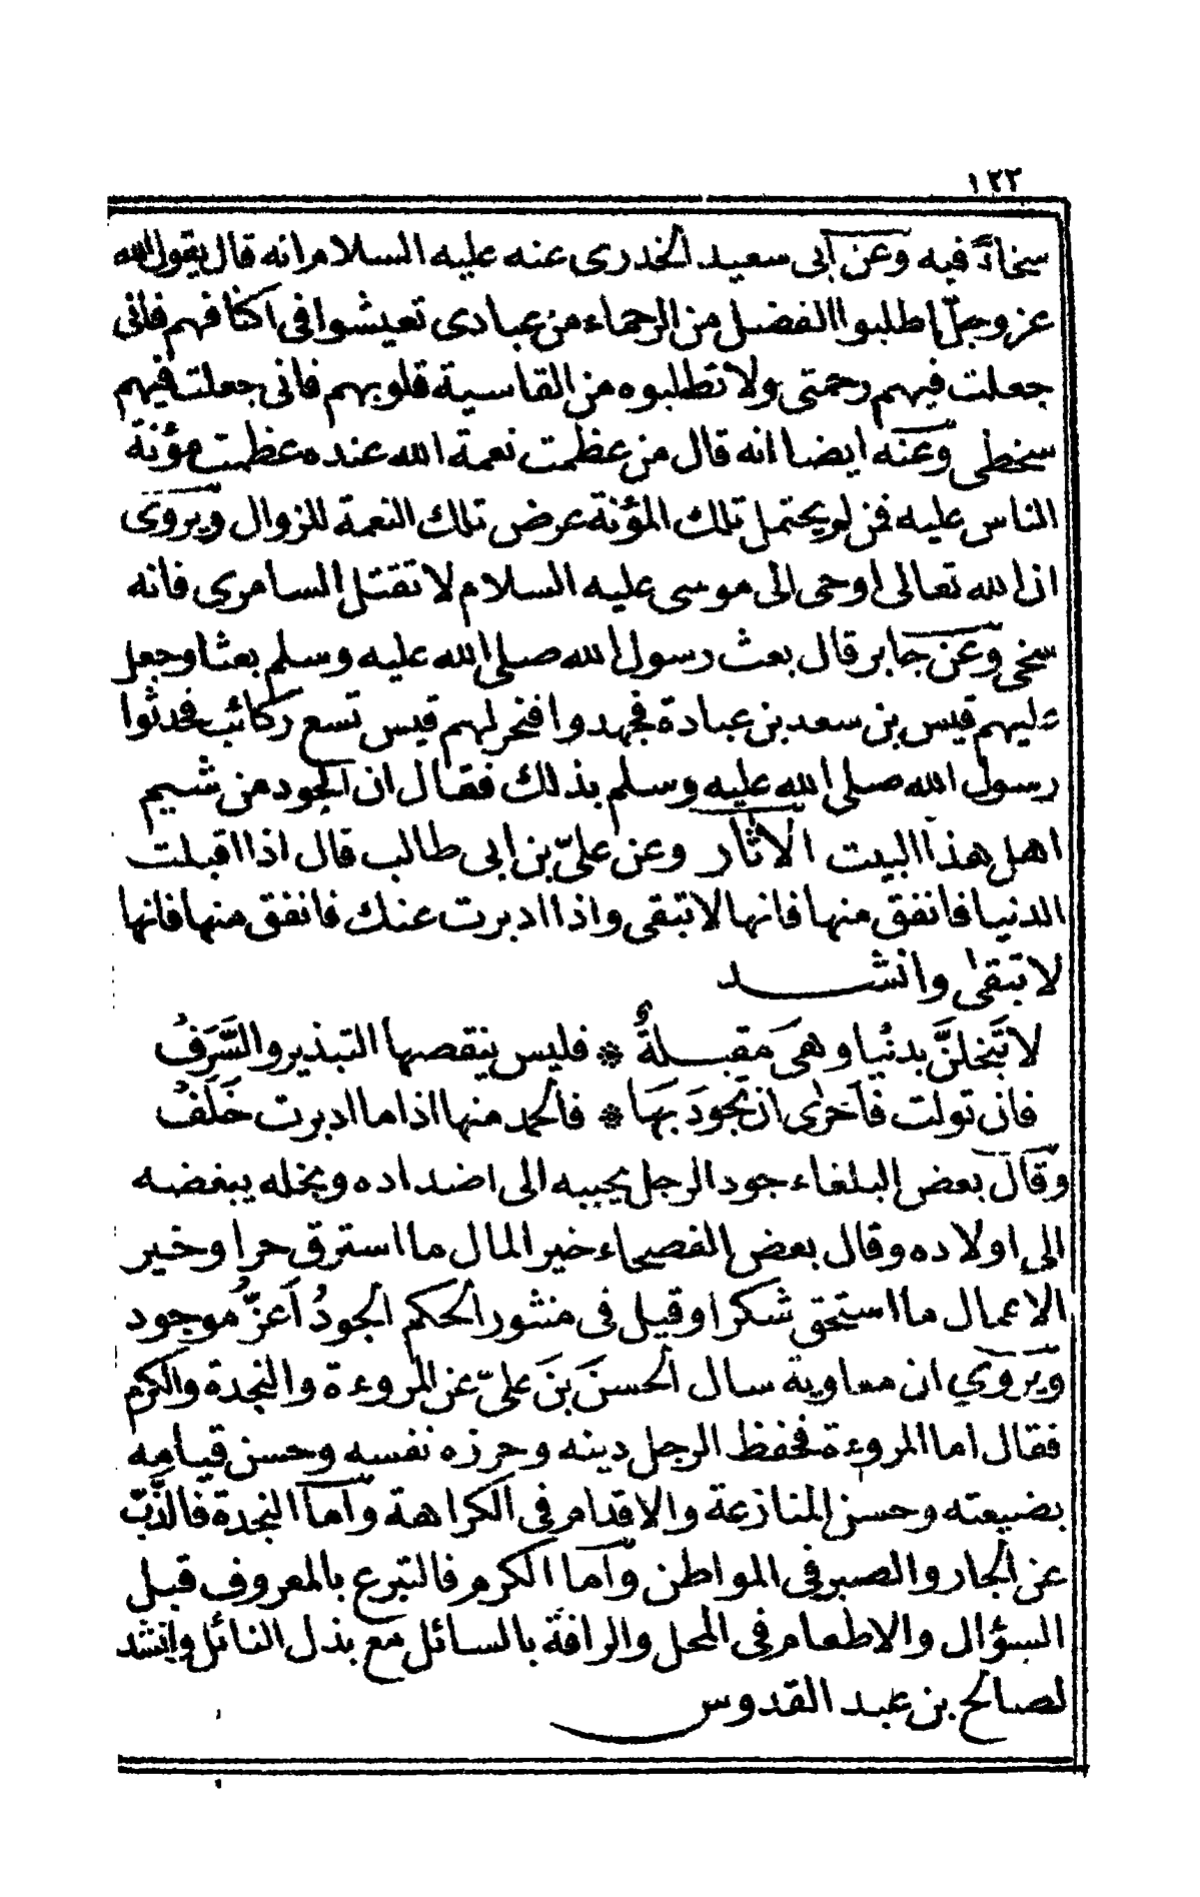 ١٢٢
سخاءً فيه وعن ابى سعيد الخدرى عنه عليه السلام انه قال يقول الله
عز وجلّ اطلبوا الفضل من الرحماء من عبادى تعيشوا فى اكنافهم فانى
جعلت فيهم رحمتى ولا تطلبوه من القاسية قلوبهم فانى جعلت فيهم
سخطى وعنه ايضا انه قال من عظمت نعمة الله عنده عظمت مؤنة
الناس عليه فمن لم يحتمل تلك المؤنة عرض تلك النعمة للزوال ويروى
ان الله تعالى اوحى الى موسى عليه السلام لا تقتل السامري فانه
سخى وعن جابر قال بعث رسول الله صلى الله عليه وسلم بعثا وجعل
عليهم قيس بن سعد بن عبادة فجهدوا فنحر لهم قيس تسع ركائب فحدثوا
رسول الله صلى الله عليه وسلم بذلك فقال ان الجود من شيم
اهل هذا البيت الاثار وعن علىّ بن ابى طالب قال اذا اقبلت
الدنيا فانفق منها فانها لا تبقى واذا ادبرت عنك فانفق منها فانها
لا تبقى وانشد
لا تَبخلنَّ بدنُيا وهىَ مَقبلةٌ * فليس ينقصها التبذير والسَّرَفُ
فان تولت فاَحرٰى ان تجَودَ بهَا * فالحمد منها اذا ما ادبرت خَلَفُ
وقال بعض البلغاء جود الرجل يحببه الى اضداده وبخله يبغضه
الى اولاده وقال بعض الفصحاء خير المال ما استرق حرا وخير
الاعمال ما استحق شكرا وقيل فى منثور الحكم الجودُ اَعزّ موجود
ويروي ان معاوية سال الحسنَ بنَ علىّ عن المروءة والنجدة والكرم
فقال اما المروءة فحفظ الرجل دينه وحرزه نفسه وحسن قيامِه
بضيعته وحسن المنازعة والاقدام فى الكراهة وأما النجدة فالذّبّ
عن الجار والصبر فى المواطن وأما الكرم فالتبرع بالمعروف قبل
السؤال والاطعام فى المحل والرافة بالسائل مع بذل النائل وانشد
لصالح بن عبد القدوس